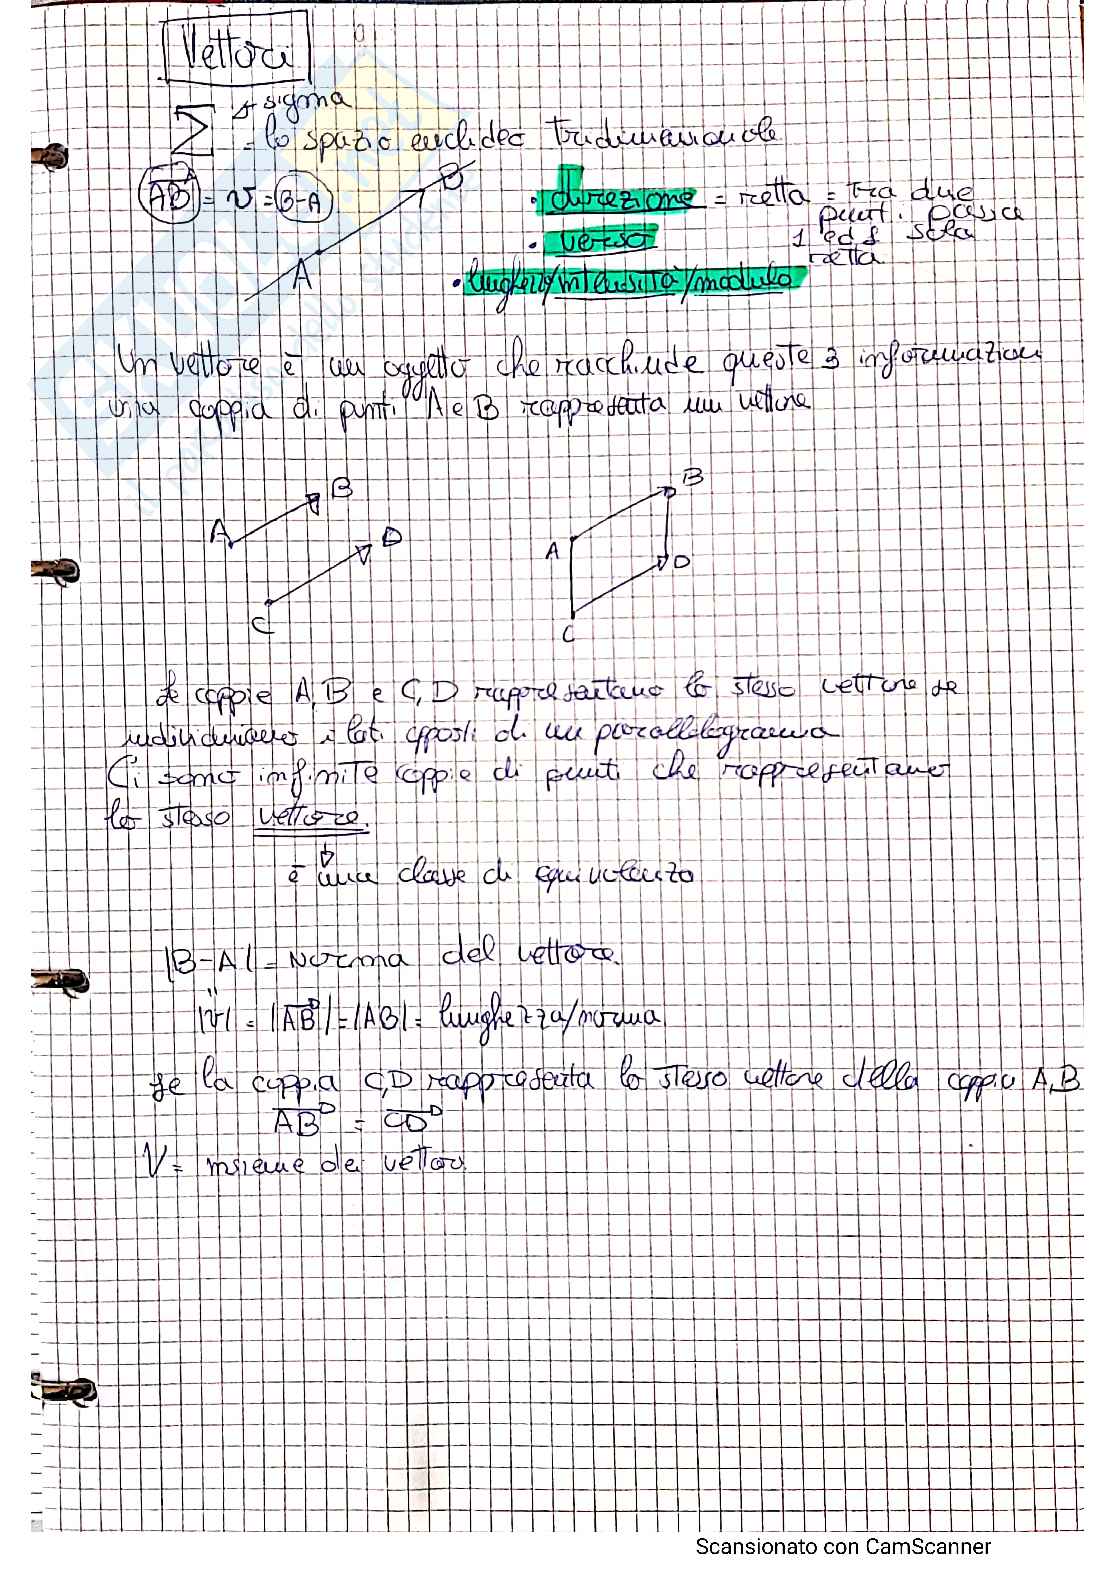 Vettori
∑ → sigma
= lo spazio euclideo tridimensionale
AB = v = B-A
A
B
• direzione = retta = tra due
punti passa
1 ed 1 sola
retta
• verso
• lunghezza/intensità/modulo
Un vettore è un oggetto che racchiude queste 3 informazioni
una coppia di punti A e B rappresenta un vettore
A
B
C
D
A
B
C
D
Le coppie A,B e C,D rappresentano lo stesso vettore se
individuano i lati opposti di un parallelogramma
Ci sono infinite coppie di punti che rappresentano
lo stesso vettore.
è una classe di equivalenza
|B-A| = Norma del vettore.
"
|v| = |AB| = |AB| = lunghezza/norma
se la coppia C,D rappresenta lo stesso vettore della coppia A,B
AB = CD
V = insieme dei vettori
Scansionato con CamScanner